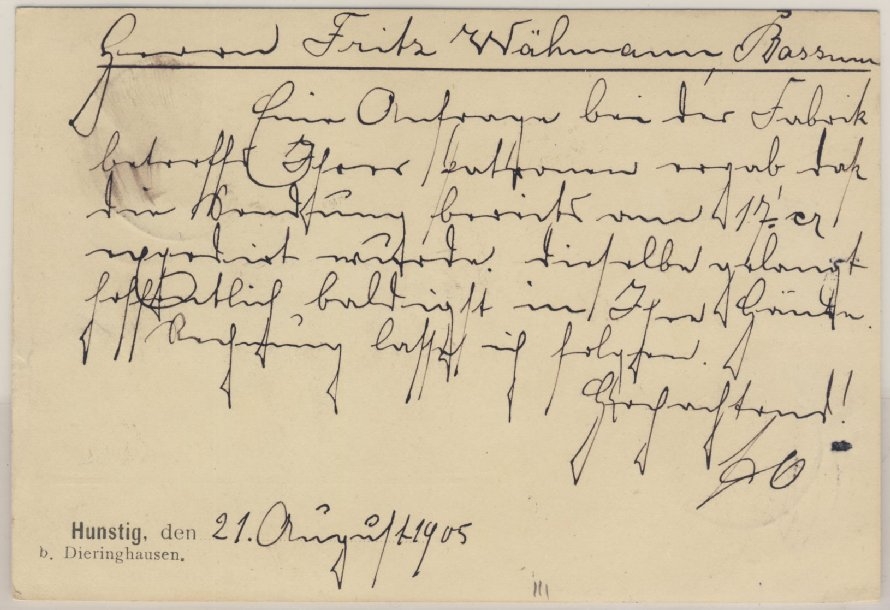 Herrn Fritz Wähmann, Bassum
Eine Anfrage bei der Fabrik
betreffs Ihrer Patronen ergab, daß
die Sendung bereits am 17. cr
expediert wurde. Dieselbe gelangt
hoffentlich baldigst in Ihre Hände.
Rechnung lasse ich folgen.
Hochachtend!
Hunstig, den 21. August 1905
b. Dieringhausen.